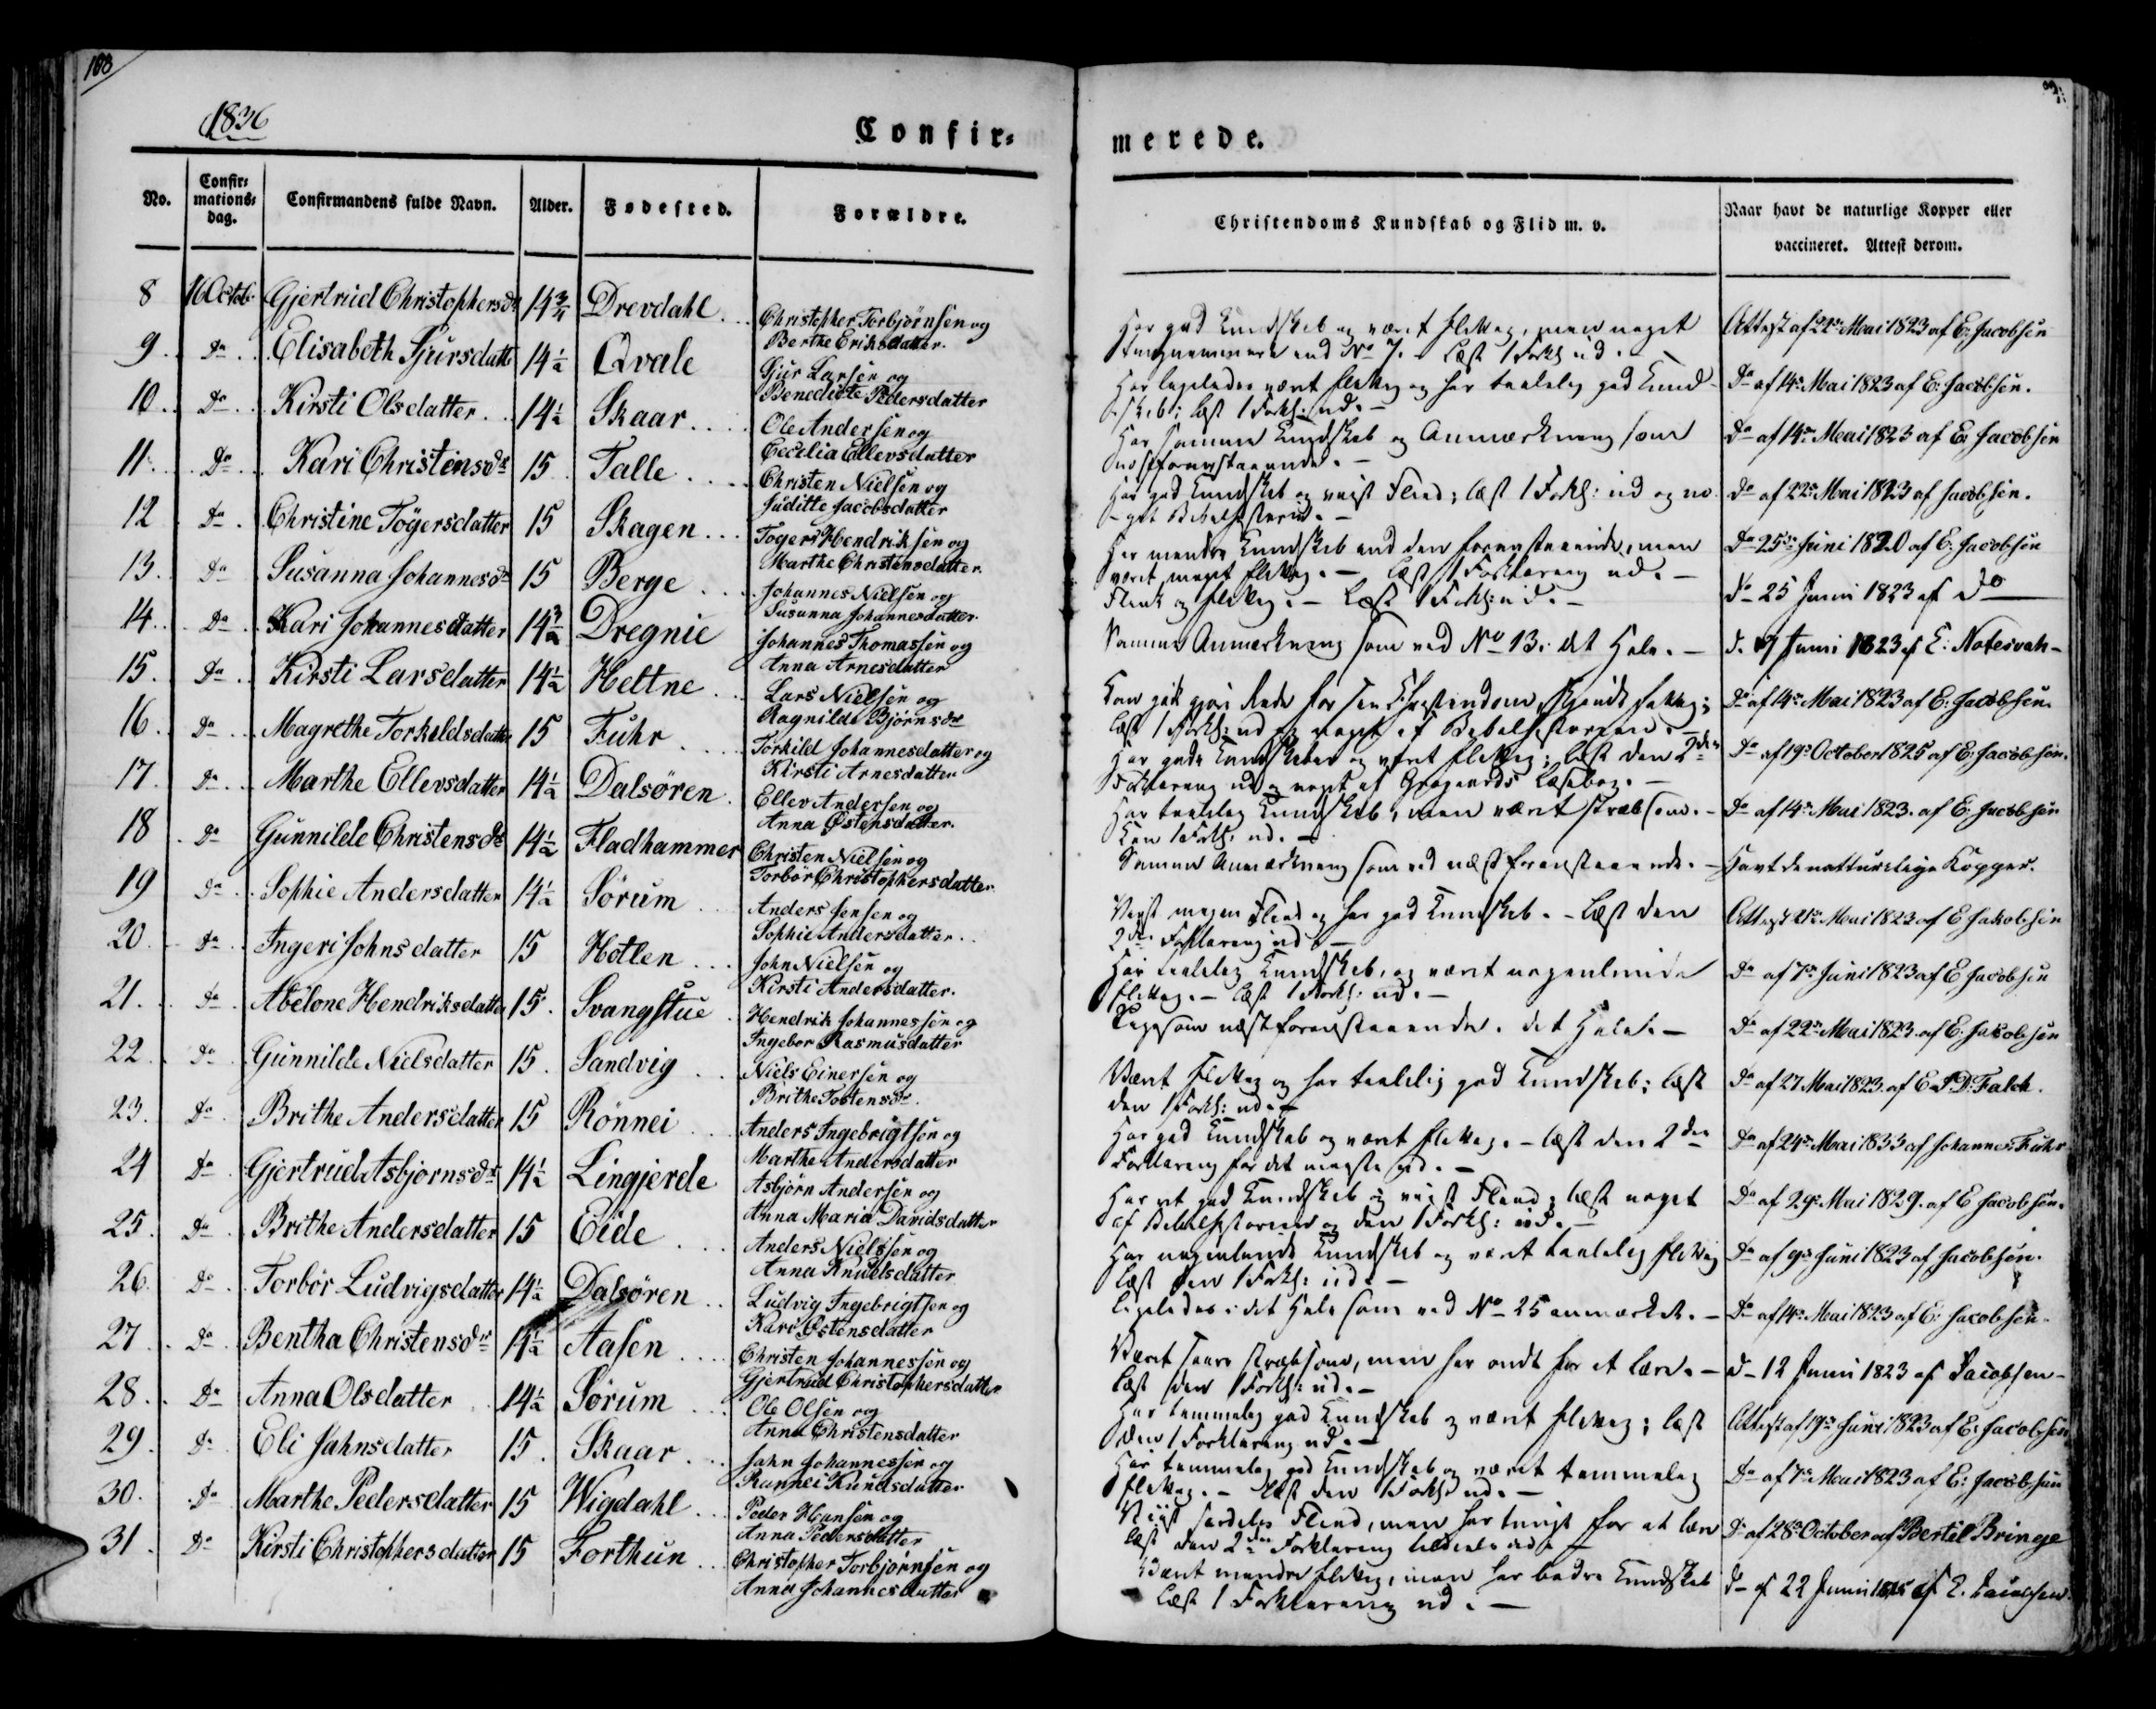 108
1836
Confir=
No. Confir=mations=dag. Confirmandens fulde Navn. Alder. Fødested. Forældre.
8 16 Octob. Gjertrud Christophersdr 14¾ Drevdahl Christopher Torbjørnsen og
Berthe Eriksdatter.
9 Do Elisabeth Sjursdatter 14½ Qvale Sjur Larsen og
Benedicte Pedersdatter
10 Do Kirsti Olsdatter 14½ Skaar Ole Andersen og
Cecilia Ellevsdatter
11 Do Kari Christensdr 15 Talle Christen Nielsen og
Juditte Jacobsdatter
12 Do Christine Tøgersdatter 15 Skagen Togers Hendriksen og
Marthe Christensdatter
13. Do Susanna Johannesdr 15 Berge Johannes Nielsen og
Susanna Johannesdatter
14. Do Kari Johannesdatter 14¾ Dregnie Johannes Thomassen og
Anna Arnesdatter
15. Do Kirsti Larsdatter 14½ Heltne Lars Nielsen og
Ragnilde Bjørnsdr
16. Do Magrethe Torkildsdatter 15 Fuhr Torkild Johannesdatter og
Kirsti Arnesdatter
17. Do Marthe Ellevsdatter 14½ Dalsøren Ellev Andersen og
Anna Østensdatter.
18 Do Gunnilde Christensdr 14½ Fladhammer Christen Nielsen og
Torbør Christophersdatter
19 Do Sophie Andersdatter 14½ Sørum Anders Jensen og
Sophie Andersdatter
20. Do Ingeri Johnsdatter 15 Hotlen John Nielsen og
Kirsti Andersdatter.
21. Do Abelone Hendriksdatter 15. Svangstue Hendrik Johannessen og
Ingebor Rasmusdatter
22 Do Gunnilde Nielsdatter 15. Sandvig Niels Einersen og
Brithe Tostensdr.
23. Do Brithe Andersdatter 15 Rønnei Anders Ingebrigtsen og
Marthe Andersdatter
24 Do Gjertrud Asbjørnsdr 14½ Lingjerde Asbjørn Andersen og
Anna Maria Davidsdatter
25. Do Brithe Andersdatter 15 Eide Anders Nielsen og
Anna Knudsdatter
26. Do Torbør Ludvigsdatter 14½ Dalsøren Ludvig Ingebrigtsen og
Kari Østensdatter
27 Do Bentha Christensdr 14½ Aasen Christen Johannessen og
Gjertrud Christophersdatter
28. Do Anna Olsdatter 14½ Sørum Ole Olsen og
Anna Christensdatter
29. Do Eli Jahnsdatter 15. Skaar Jahn Johannessen og
Rannei Knudsdatter
30. Do Marthe Pedersdatter 15 Wigdahl Peder Hansen og
Anna Pedersdatter
31. Do Kirsti Christophersdatter 15 Forthun Christopher Torbjørnsen og
Anna Johannesdatter
merede.
Christendoms Kundskab og Flid m. v. Naar havt de naturlige Kopper eller
vaccineret. Attest derom.
Har god Kundskab og været flittig, men noget Attest af 24de Mai 1823 af E: Jacobsen
end No 7. - Læst 1 Forkl: ud. -
Har ligeledes været flittig og har taalelig god Kund- Do af 14de Mai 1823 af E: Jacobsen.
skab; læst 1 Forkl: ud. -
Har samme Kundskab og Anmærkning som Do af 14de Mai 1823 af E: Jacobsen
næstforanstaaende. -
Har god Kundskab og viist Fliid; læst 1 Forkl: ud og no- Do af 22de Mai 1823 af Jacobsen.
get Bibelhistorie. -
Har mindre Kundskab end den foranstaaende, men Do 25de Juni 1820 af E: Jacobsen
været meget flittig. - læst 1 Forklaring ud. -
Flink og flittig. - Læst 1 Forkl: ud. - Do 25 Juni 1823 af Do
Samme Anmærkning som ved No 13. det Hele. - d. 17 Juni 1823 af E: Notesvah-
Kan godt gjøre Rede for sin Christendom, Do af 14de Mai 1823 af E: Jacobsen.
læst 1 Forkl: ud og noget af Bibelhistorien. -
Har gode Kundskaber og været flittig; læst den 2den Do af 19de October 1825 af E: Jacobsen.
Forklaring ud og noget af Grøgaards Læsebog. -
Har taalelig Kundskab, men været stræbsom. - Do af 14de Mai 1823. af E: Jacobsen
1 Forkl: ud. -
Samme Anmærkning som ved næstforanstaaende. - Havt de natturlige Kopper.
Viist megen Fliid og har god Kundskab. - Læst den Attest 21de Mai 1823 af E Jakobsen
2den Forklaring ud. -
Har taalelig Kundskab, og været nogenlunde Do af 7de Juni 1823 af E Jacobsen
flittig. - læst 1 Forkl: ud. -
Ligesom næstforanstaaende. det Hele. - Do af 22de Mai 1823. af E. Jakobsen
Været flittig og har taalelig god Kundskab; læst Do af 27 Mai 1823. af E. D. Falch.
den 1 Forkl: ud. -
Har god Kundskab og været flittig. - læst den 2den Do af 24de Mai 1833 af Johannes Fuhr
Forklaring for det meste ud. -
Har ret god Kundskab og viist Fliid; læst noget Do af 29de Mai 1829. af E Jacobsen.
af Bibelhistorien og den 1 Forkl: ud. -
Har nogenlunde Kundskab og været taalelig flittig Do af 9de Juni 1823 af Jacobsen.
læst den 1 Forkl: ud. -
ligeledes i det Hele som ved No 25 anmærket. - Do af 14de Mai 1823 af E: Jacobsen.
Været saare stræbsom, men har ondt for at lære. - d- 12 Juni 1823 af Jacobsen-
læst den 1 Forkl: ud. -
Har temmelig god Kundskab og været flittig; læst Attest af 19de Juni 1823 af E: Jacobsen
den 1 Forklaring ud. -
Har temmelig god Kundskab og været temmelig Do af 7de Mai 1823 af E: Jacobsen
flittig. - læst den 1 Forkl: ud. -
Viist særdeles Fliid, men har tungt for at lære Do af 28de October af Bertil Bringe
læst den 2den Forklaring ud. -
Været mindre flittig, men har bedre Kundskab d- af 22 Juni af E. Jacobsen
Læst 1 Forklaring ud. -